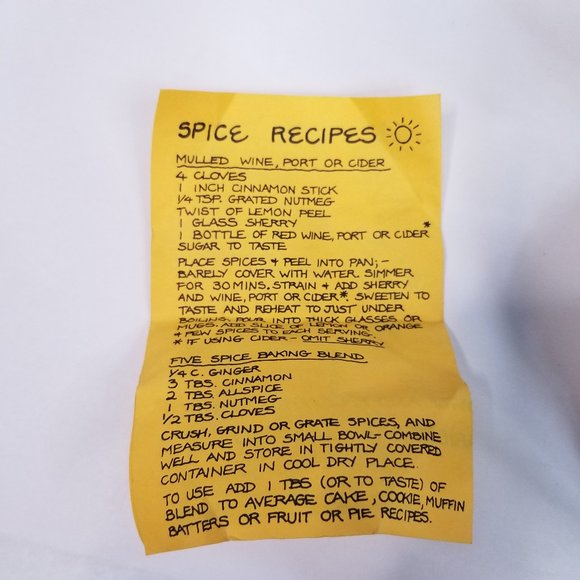 SPICE RECIPES
MULLED WINE, PORT OR CIDER
4 CLOVES
1 INCH CINNAMON STICK
1/4 TSP. GRATED NUTMEG
TWIST OF LEMON PEEL
1 GLASS SHERRY
1 BOTTLE OF RED WINE, PORT OR CIDER*
SUGAR TO TASTE
PLACE SPICES + PEEL INTO PAN;-
BARELY COVER WITH WATER. SIMMER
FOR 30 MINS. STRAIN + ADD SHERRY
AND WINE, PORT OR CIDER*. SWEETEN TO
TASTE AND REHEAT TO JUST UNDER
BOILING. POUR INTO THICK GLASSES OR
MUGS. ADD SLICE OF LEMON OR ORANGE
+ FEW SPICES TO EACH SERVING.
* IF USING CIDER - OMIT SHERRY
FIVE SPICE BAKING BLEND
1/4 C. GINGER
3 TBS. CINNAMON
2 TBS. ALLSPICE
1 TBS. NUTMEG
1/2 TBS. CLOVES
CRUSH, GRIND OR GRATE SPICES, AND
MEASURE INTO SMALL BOWL - COMBINE
WELL AND STORE IN TIGHTLY COVERED
CONTAINER IN COOL DRY PLACE.
TO USE ADD 1 TBS (OR TO TASTE) OF
BLEND TO AVERAGE CAKE, COOKIE, MUFFIN
BATTERS OR FRUIT OR PIE RECIPES.